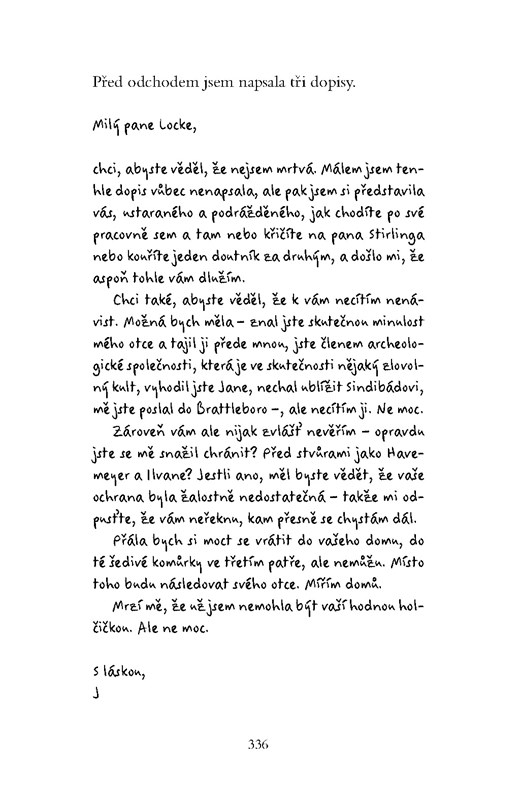 Před odchodem jsem napsala tři dopisy.
Milý pane Locke,
chci, abyste věděl, že nejsem mrtvá. Málem jsem ten-
hle dopis vůbec nenapsala, ale pak jsem si představila
vás, ustaraného a podrážděného, jak chodíte po své
pracovně sem a tam nebo křičíte na pana Stirlinga
nebo kouříte jeden doutník za druhým, a došlo mi, že
aspoň tohle vám dlužím.
Chci také, abyste věděl, že k vám necítím nená-
vist. Možná bych měla – znal jste skutečnou minulost
mého otce a tajil ji přede mnou, jste členem archeolo-
gické společnosti, která je ve skutečnosti nějaký zlovol-
ný kult, vyhodil jste Jane, nechal ublížit Sindibádovi,
mě jste poslal do Brattleboro –, ale necítím ji. Ne moc.
Zároveň vám ale nijak zvlášť nevěřím – opravdu
jste se mě snažil chránit? Před stvůrami jako Have-
meyer a Ilvane? Jestli ano, měl byste vědět, že vaše
ochrana byla žalostně nedostatečná – takže mi od-
pusťte, že vám neřeknu, kam přesně se chystám dál.
Přála bych si moct se vrátit do vašeho domu, do
té šedivé komůrky ve třetím patře, ale nemůžu. Místo
toho budu následovat svého otce. Mířím domů.
Mrzí mě, že už jsem nemohla být vaší hodnou hol-
čičkou. Ale ne moc.
S láskou,
J
336